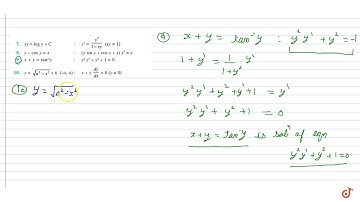 7. xy = log y + C : y' = y²/(1 − xy) (xy ≠ 1)
8. y − cos y = x : (y sin y + cos y + x) y' = y
9. x + y = tan⁻¹y : y² y' + y² + 1 = 0
10. y = √(a² − x²) x ∈ (−a, a) : x + y dy/dx = 0 (y ≠ 0)
⑩ y = √(a² − x²)
⑨ x + y = tan⁻¹y : y² y' + y² = −1
1 + y' = 1/(1 + y²) y'
y² y' + y² + y' + 1 = y'
y² y' + y² + 1 = 0
x + y = tan⁻¹y is solⁿ of eqn
y² y' + y² + 1 = 0